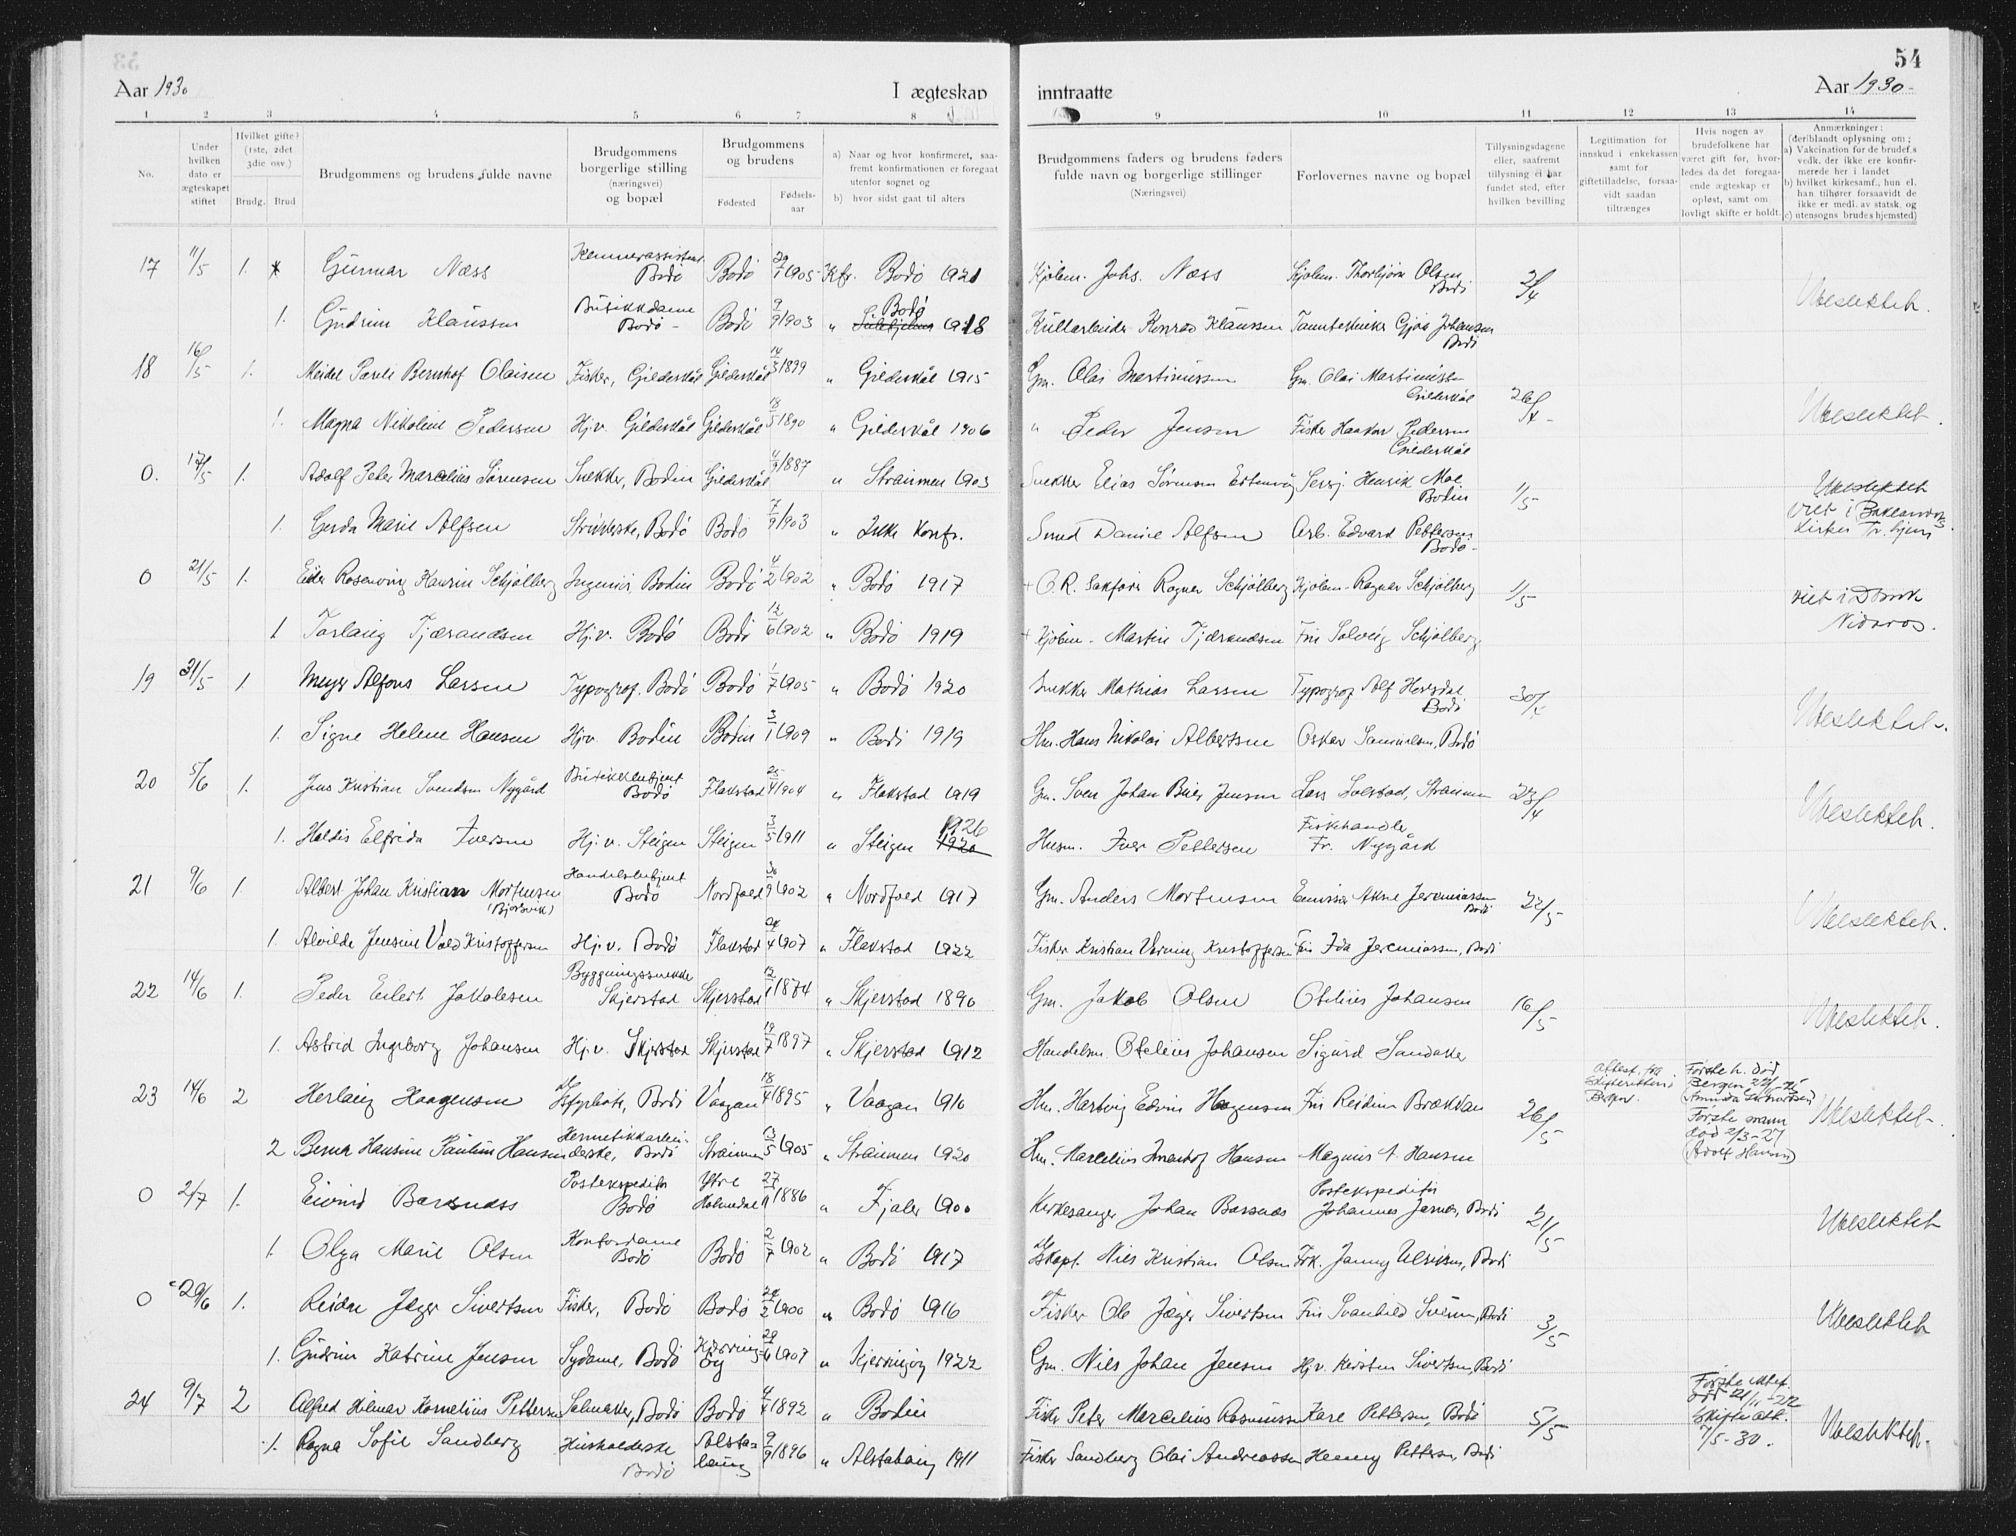 54
Aar 1930
I ægteskap
inntraatte
Aar 1930-
1 2 3 4 5 6 7 8 9 10 11 12 13 14
No.
Under hvilken dato er ægteskapet stiftet
Hvilket gifte? (1ste, 2det 3die osv.)
Brudg. Brud
Brudgommens og brudens fulde navne
Brudgommens borgerlige stilling (næringsvei) og bopæl
Brudgommens og brudens
Fødested
Fødsels-aar
a) Naar og hvor konfirmeret, saafremt konfirmationen er foregaat utenfor sognet og
b) hvor sidst gaat til alters
Brudgommens faders og brudens faders fulde navn og borgerlige stillinger
(Næringsvei)
Forlovernes navne og bopæl
Tillysningsdagene eller, saafremt tillysning ei har fundet sted, efter hvilken bevilling
Legitimation for innskud i enkekassen samt for giftetilladelse, forsaavidt saadan tiltrænges
Hvis nogen av brudefolkene har været gift før, hvorledes da det foregaaende ægteskap er opløst, samt om lovligt skifte er holdt
Anmærkninger: (deriblandt oplysning om; a) Vakcination for de brudef.s vedk. der ikke ere konfirmerede her i landet b) hvilket kirkesamf., hun el. han tilhører forsaavidt de ikke er medl. av statsk. og c) utensogns brudes hjemsted)
17 11/5 1. Gunnar Næss Kemnerassistent Bodø Bodø 29/1 1905 Kfr. Bodø 1921 Kjøbm. Johs. Næss Kjøbm. Thorbjørn Olsen Bodø 2/4 Ubeslektet.
1. Gudrun Klaussen Butikkdame Bodø - Bodø 9/9 1903 " Bodø 1918 Konrad Klaussen Johansen Bodø
18 16/5 1. Meidel Bernhof Olaisen Fisker, Gildeskål Gildeskål 14/3 1899 " Gildeskål 1915 Gm. Olai Martinussen Gm. Olai Martinussen Gildeskål 26/4 - Ubeslektet.
1. Magna Nikoline Pedersen Hj.v. Gildeskål Gildeskål 18/5 1890 " Gildeskål 1906 " Peder Jensen Fisker Haakon Pedersen Gildeskål
0. 17/5 1. Adolf Peter Marcelius Sørensen Snekker, Bodin Gildeskål 4/9 1887 " Straumen 1903 Snekker Elias Sørensen Henrik Moe Bodin 1/5 Ubeslektet viet i Baklandets kirke Tr.hjem
1. Gerda Marie Alfsen Strikkerske, Bodø Bodø 7/9 1903 " Ikke konfr. Smed Daniel Alfsen Arb. Edvard Pettersen Bodø-
0 21/5 1. Rosenving Schjølberg Ingeniør, Bodin Bodø 4/2 1902 " Bodø 1917 + O.R. Sakfører Ragnar Schjølberg Kjøbm. Ragnar Schjølberg 1/5 viet i Nidaros.
1 Torlaug Tjærandsen Hj.v. Bodø Bodø 12/6 1902 " Bodø 1919 + Kjøbm. Martin Tjærandsen Fru Solveig Schjølberg
19 31/5 1. Meyer Alfons Larsen Typograf. Bodø Bodø 1/7 1905 " Bodø 1920 Snekker Mathias Larsen Typograf Alf Bodø 30/4 Ubeslektet.
1. Signe Helene Hansen Hj.v. Bodin Bodin 3/1 1909 " Bodø 1919 Hm. Hans Nikolai Albertsen Oskar Samuelsen, Bodø
20 5/6 1. Jens Kristian Svendsen Nygård Butikkbetjent Bodø Flakstad 25/4 1904 " Flakstad 1919 Gm. Sven Johan Jensen Lars Solstad, Straumen 23/4 Ubeslektet.
1. Haldis Elfrida Iversen Hj.v. Steigen Steigen 3/5 1911 " Steigen 1920 1926 Husm. Iver Pettersen Fiskehandler Fr. Nygård
21 9/6 1. Albert Johan Kristian Mortensen (Bjørsvik) Handelsbetjent Bodø Nordfold 30/9 1902 " Nordfold 1917 Gm. Anders Mortensen Emissær Jeremiassen Bodø 22/5 Ubeslektet.
1. Alvilde Jensine Kristoffersen Hj.v. Bodø Flakstad 24/4 1907 " Flakstad 1922 Fisker Kristian Kristoffersen Fru Ida Jeremiassen, Bodø
22 14/6 1. Peder Eilert Jakobsen Bygningssnekker Skjerstad Skjerstad 12/1 1874 " Skjerstad 1890 Gm. Jakob Olsen Otelius Johansen 16/5 Ubeslektet.
1. Astrid Ingeborg Johansen Hj.v. Skjerstad Skjerstad 19/7 1897 " Skjerstad 1912 Handelsm. Otelius Johansen Sigurd Sandaker
23 14/6 2 Herlaug Haagensen Bodø Vaagan 18/4 1895 " Vaagan 1910 Hm. Hartvig Edvin Haagensen Fru Reidun Brækkan 26/5 Attest. fra Skifteretten i Bergen. Første h. død Bergen Ubeslektet-
2 Berna Hansine Pauline Hansen Hermetikkarbeiderske, Bodø Straumen 13/5 1905 " Straumen 1920 Hm. Marcelius Hansen Magnus A. Hansen Første mann død 2/3-27 (Adolf Hansen)
0 2/7 1. Eivind Barsnæss Postekspeditør Bodø Ytre Holmedal 27/11 1886 " Fjaler 1900 Kirkesanger Johan Barsnes Postekspeditør Johannes Bodø 21/5 Ubeslektet
1. Olga Marie Olsen Kontordame Bodø Bodø 2/7 1902 " Bodø 1917 Nils Kristian Olsen Frk. Janny Ulriksen, Bodø
0 29/6 1. Reidar Jæger Sivertsen Fisker, Bodø Bodø 24/2 1900 " Bodø 1916 Fisker Ole Jæger Sivertsen Fru Svanhild Bodø 3/5 Ubeslektet
1. Gudrun Katrine Jensen Sydame, Bodø Kjerringøy 29/6 1907 " Kjerringøy 1922 Gm. Nils Johan Jensen Hj.v. Kirsten Sivertsen, Bodø
24 9/7 2 Alfred Hilmar Kornelius Pettersen Salmaker, Bodø Bodø 4/4 1892 " Bodin Fisker Peter Marcelius Rasmussen Kare Pettersen, Bodø 5/5 Første ektef. død Skifte att. 7/5-30. Ubeslektet.
1. Ragna Sofie Sandberg Husholderske Bodø Alstahaug 9/9 1896 " Alstahaug 1911 Fisker Sandberg Olai Andreassen Henny Pettersen, Bodø